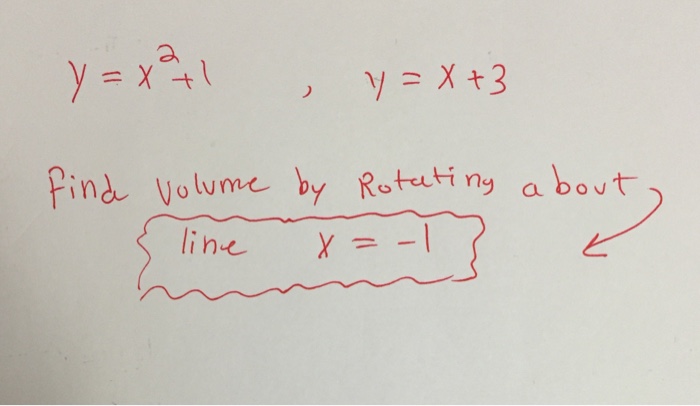 y = x²+1 , y = x+3
find volume by Rotating about
line x = -1